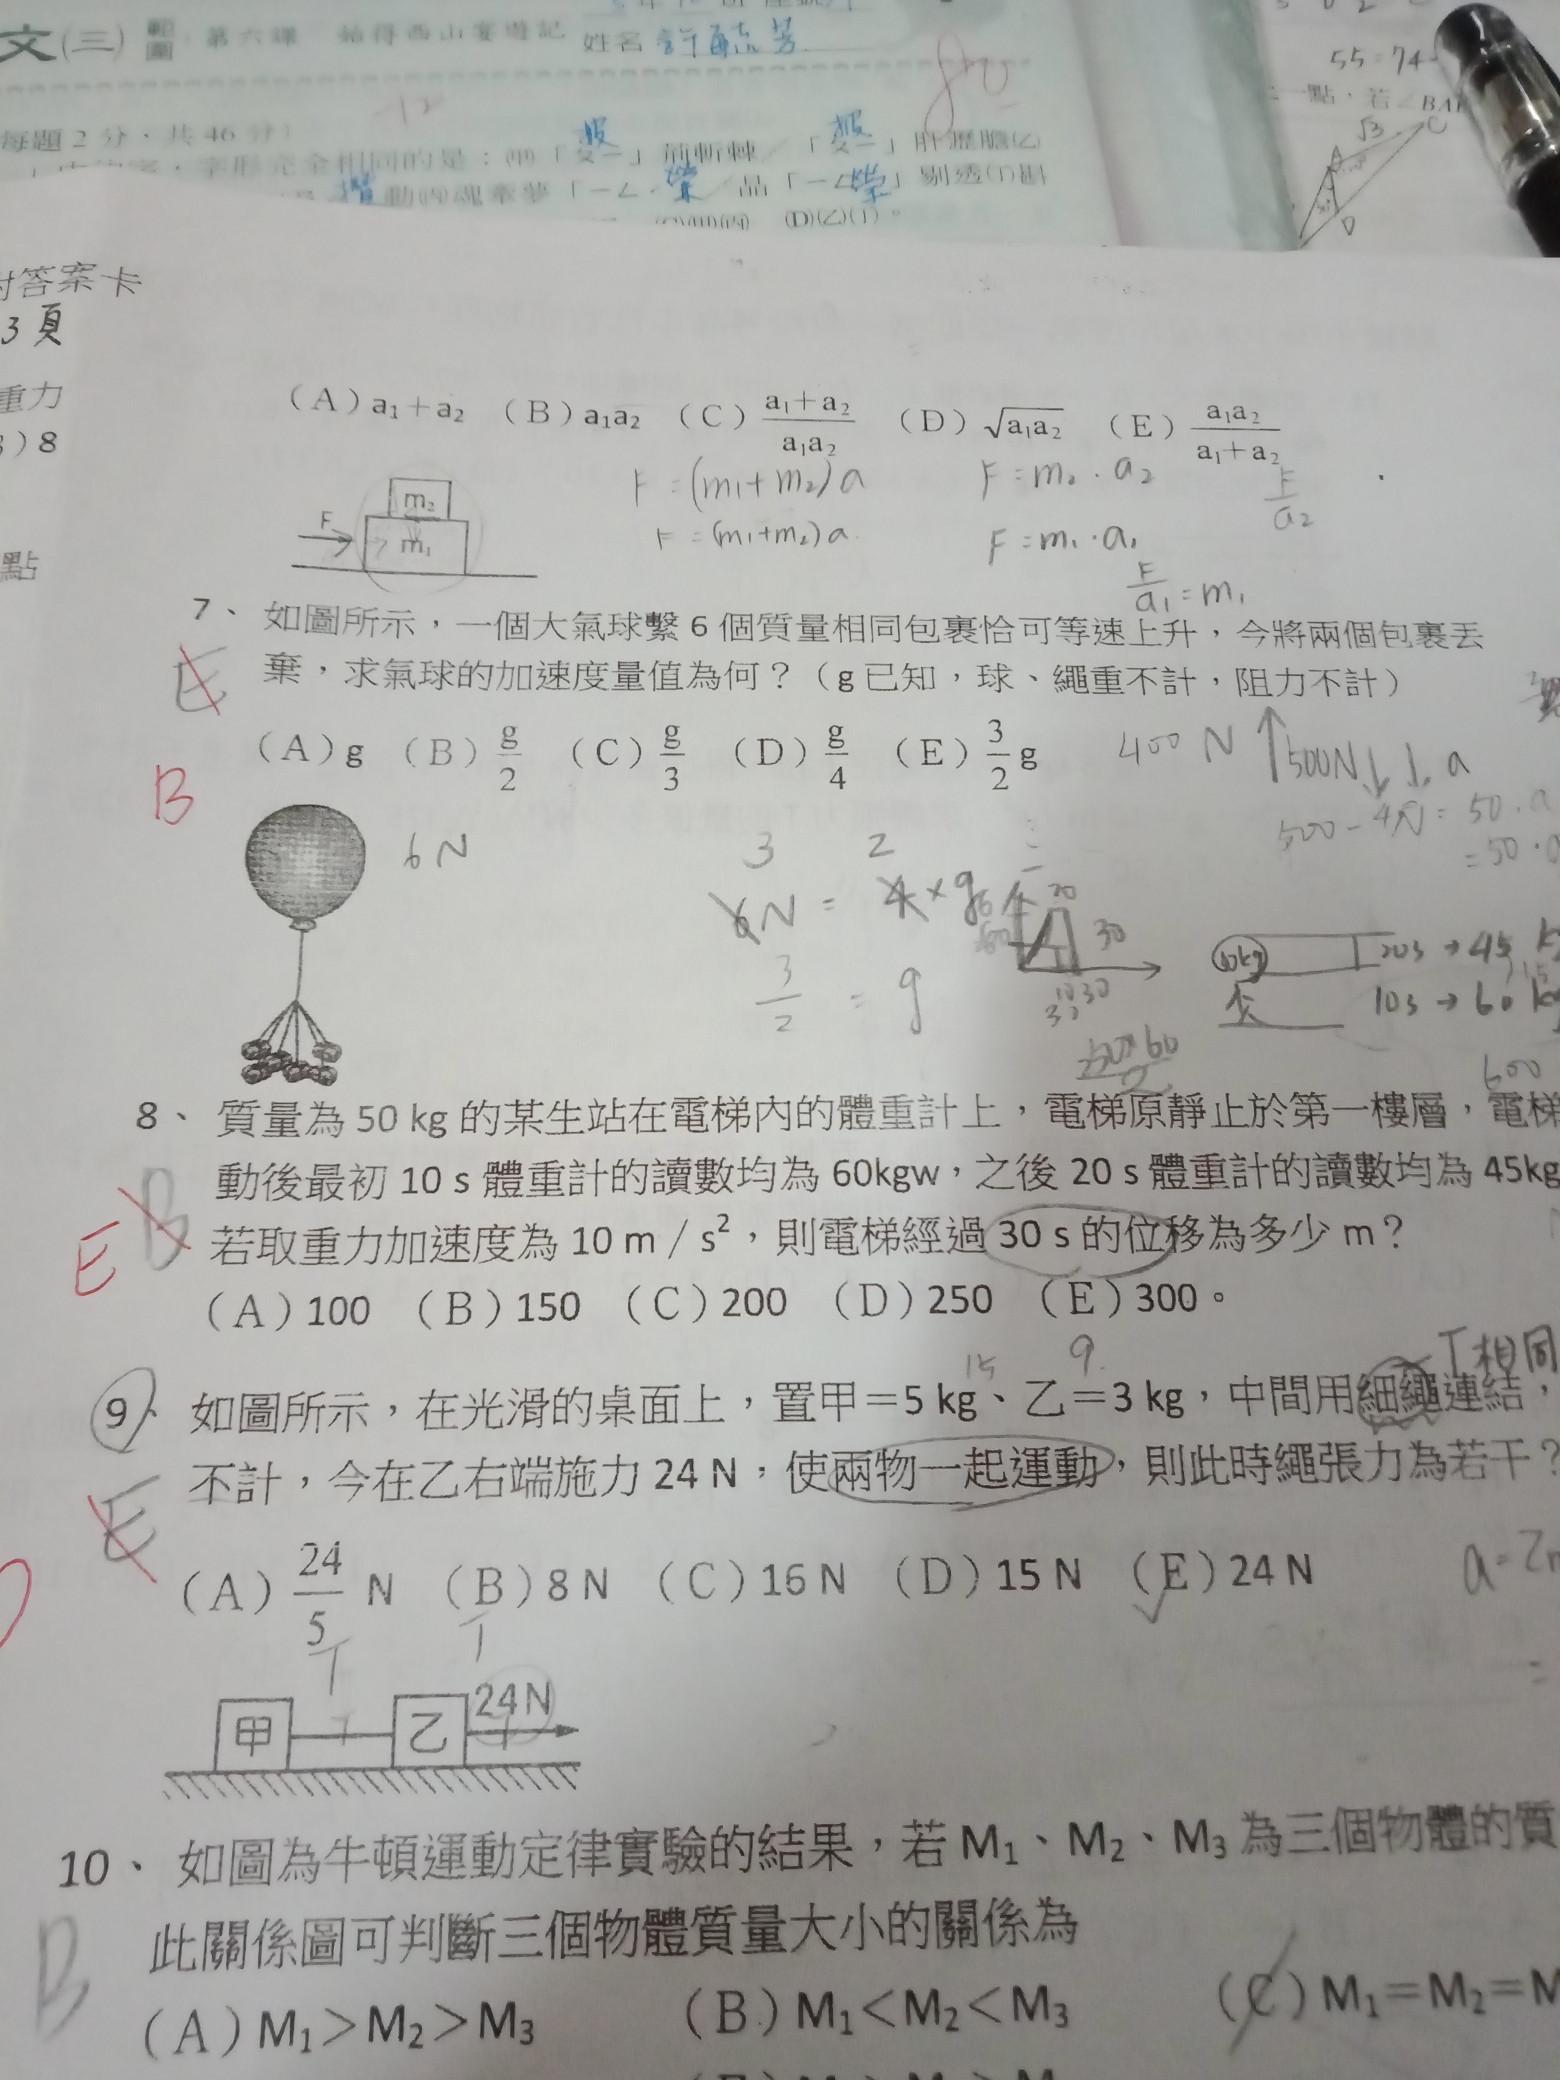 文(三) 範圍 第六課 始得西山宴遊記 姓名
每題2分、共46分
55=74
點,若∠BA
√3 C
A
D
(D)(乙)(丁)。
封答案卡
3頁
重力
)8
點
(A) a₁+a₂ (B) a₁a₂ (C) (a₁+a₂)/(a₁a₂) (D) √(a₁a₂) (E) (a₁a₂)/(a₁+a₂)
F=(m₁+m₂)a F=m₂·a₂ F/a₂
F=(m₁+m₂)a F=m₁·a₁
F/a₁=m₁
m₂
F
m₁
7、如圖所示,一個大氣球繫 6 個質量相同包裹恰可等速上升,今將兩個包裹丟
棄,求氣球的加速度量值為何?(g 已知,球、繩重不計,阻力不計)
E
(A) g (B) g/2 (C) g/3 (D) g/4 (E) 3/2 g
B
400 N 500N a
=50·a
6N
3 2
6N = 4×g
3/2 = g
20
30
10kg 20s→45
10s→60 kg
600
8、質量為 50 kg 的某生站在電梯內的體重計上,電梯原靜止於第一樓層,電梯
動後最初 10 s 體重計的讀數均為 60kgw,之後 20 s 體重計的讀數均為 45kg
若取重力加速度為 10 m/s²,則電梯經過 30 s 的位移為多少 m?
B
E
(A) 100 (B) 150 (C) 200 (D) 250 (E) 300。
15 9 T相同
9、如圖所示,在光滑的桌面上,置甲=5 kg、乙=3 kg,中間用細繩連結,
不計,今在乙右端施力 24 N,使兩物一起運動,則此時繩張力為若干?
E
(A) 24/5 N (B) 8 N (C) 16 N (D) 15 N (E) 24 N
a=
T T
甲 乙 24N
10、如圖為牛頓運動定律實驗的結果,若 M₁、M₂、M₃ 為三個物體的質
此關係圖可判斷三個物體質量大小的關係為
B
(A) M₁>M₂>M₃ (B) M₁<M₂<M₃ (C) M₁=M₂=M